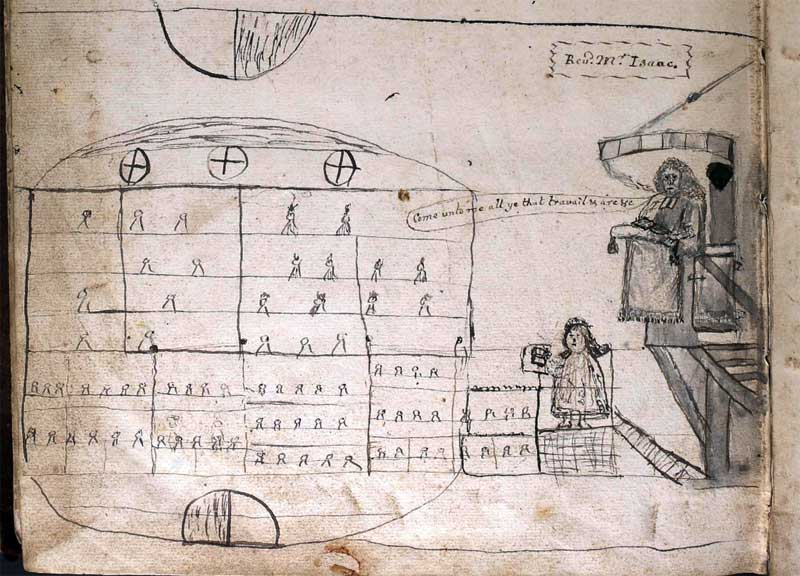 Revd. Mr. Isaac.
Come unto me all ye that travail & are &c